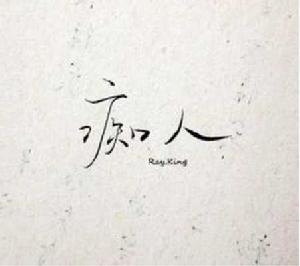 痴人
Ray.King